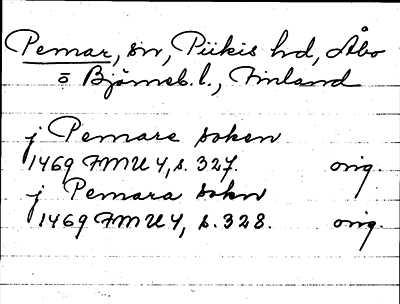 Pemar, sn, Piikis hd, Åbo
o Björneb. l., Finland
j Pemare soken
1469 FMU 4, s. 327. orig.
j Pemara sokn
1469 FMU 4, s. 328. orig.